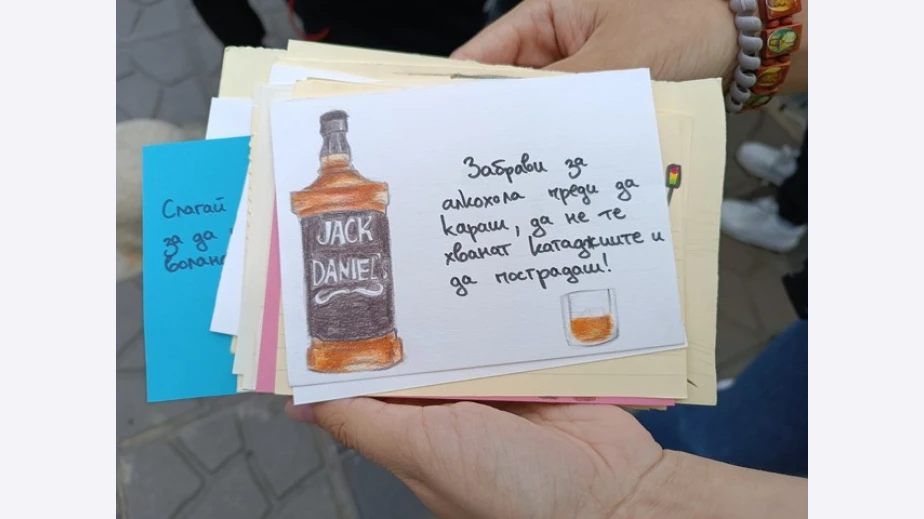 Слагай
за да
волана
JACK
DANIEL's
Забрави за
алкохола преди да
караш, да не те
хванат катаджиите и
да пострадаш!